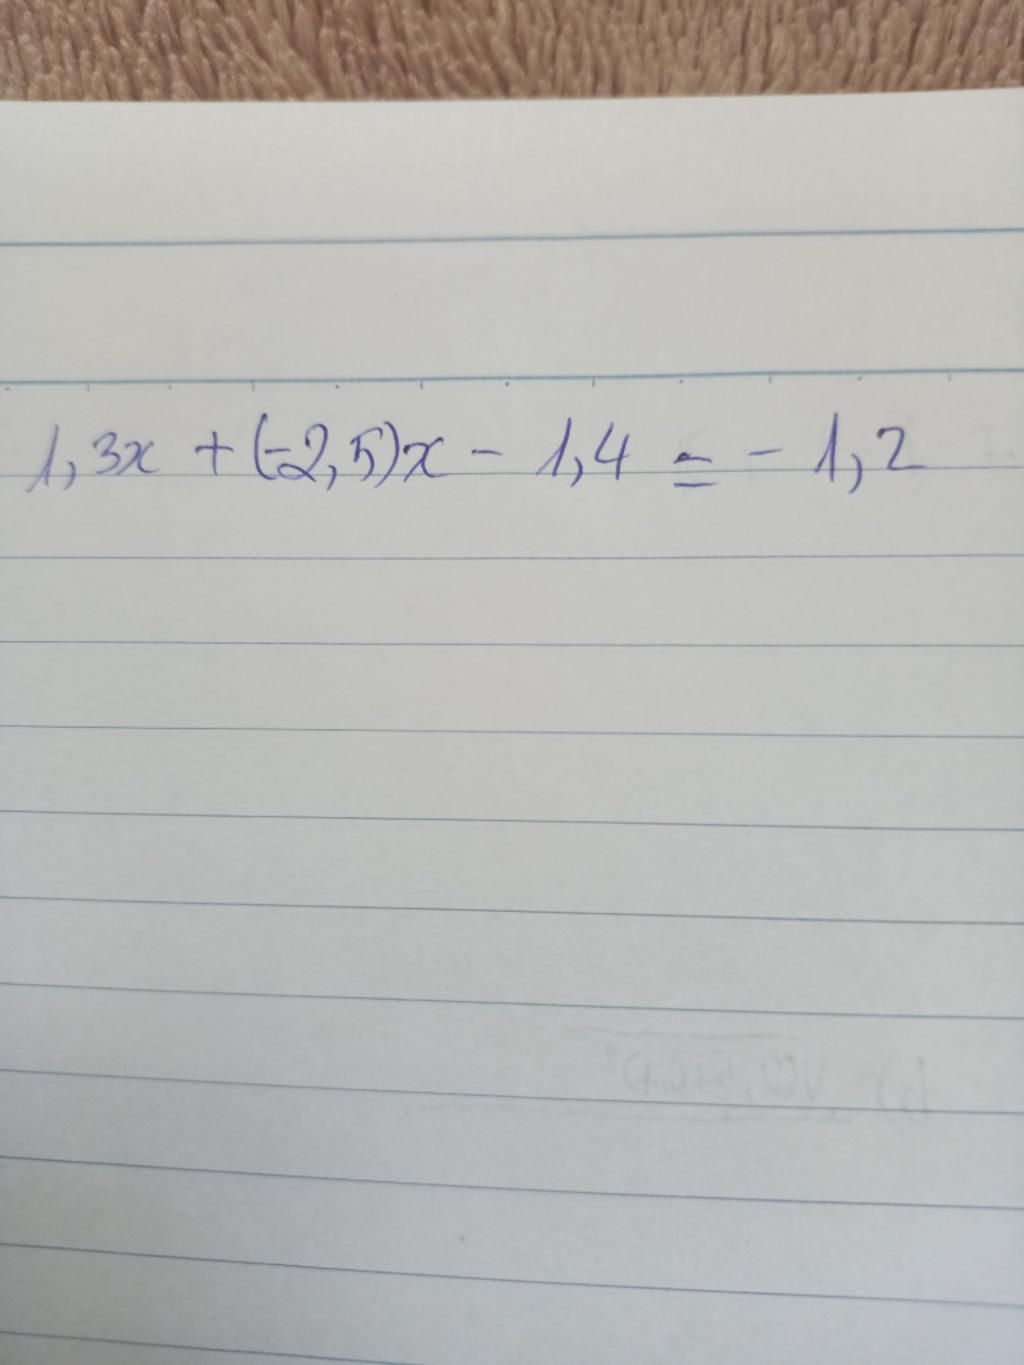 1,3x + (-2,5)x - 1,4 = - 1,2